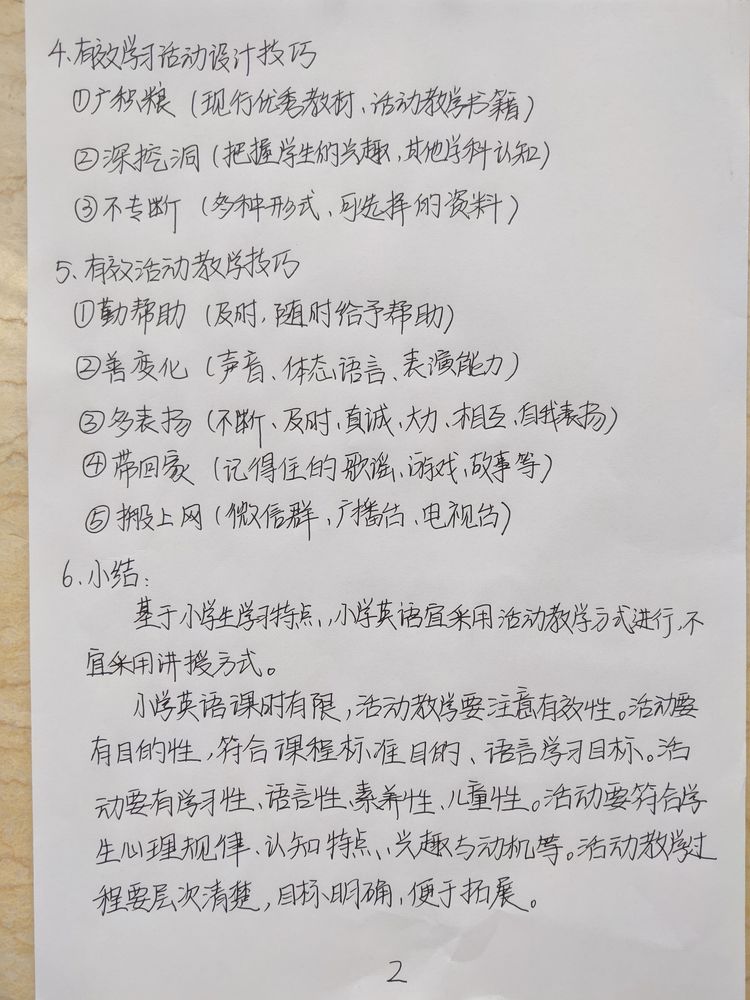 4、有效学习活动设计技巧
①广积粮（现行优秀教材、活动教学书籍）
②深挖洞（把握学生的兴趣，其他学科认知）
③不专断（多种形式、可选择的资料）
5、有效活动教学技巧
①勤帮助（及时，随时给予帮助）
②善变化（声音、体态语言、表演能力）
③多表扬（不断、及时、真诚、大力、相互、自我表扬）
④带回家（记得住的歌谣、游戏、故事等）
⑤搬上网（微信群、广播台、电视台）
6、小结：
基于小学生学习特点，小学英语宜采用活动教学方式进行，不
宜采用讲授方式。
小学英语课时有限，活动教学要注意有效性。活动要
有目的性，符合课程标准目的、语言学习目标。活
动要有学习性、语言性、素养性、儿童性。活动要符合学
生心理规律、认知特点、兴趣与动机等。活动教学过
程要层次清楚，目标明确，便于拓展。
2